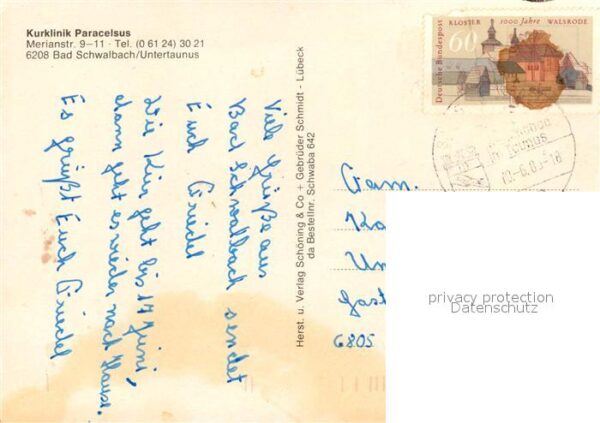 Kurklinik Paracelsus
Merianstr. 9–11 · Tel. (0 61 24) 30 21
6208 Bad Schwalbach/Untertaunus
Viele Grüße aus
Bad Schwalbach sendet
Euch Friedel
Die Kur geht bis 14 Juni,
dann geht es wieder nach Hause.
Es grüßt Euch Friedel
Herst. u. Verlag Schöning & Co + Gebrüder Schmidt - Lübeck
da Bestellnr. Schwaba 642
Deutsche Bundespost
KLOSTER 1000 Jahre WALSRODE
60
Fam.
Ka
Un
Gast
6805
privacy protection
Datenschutz